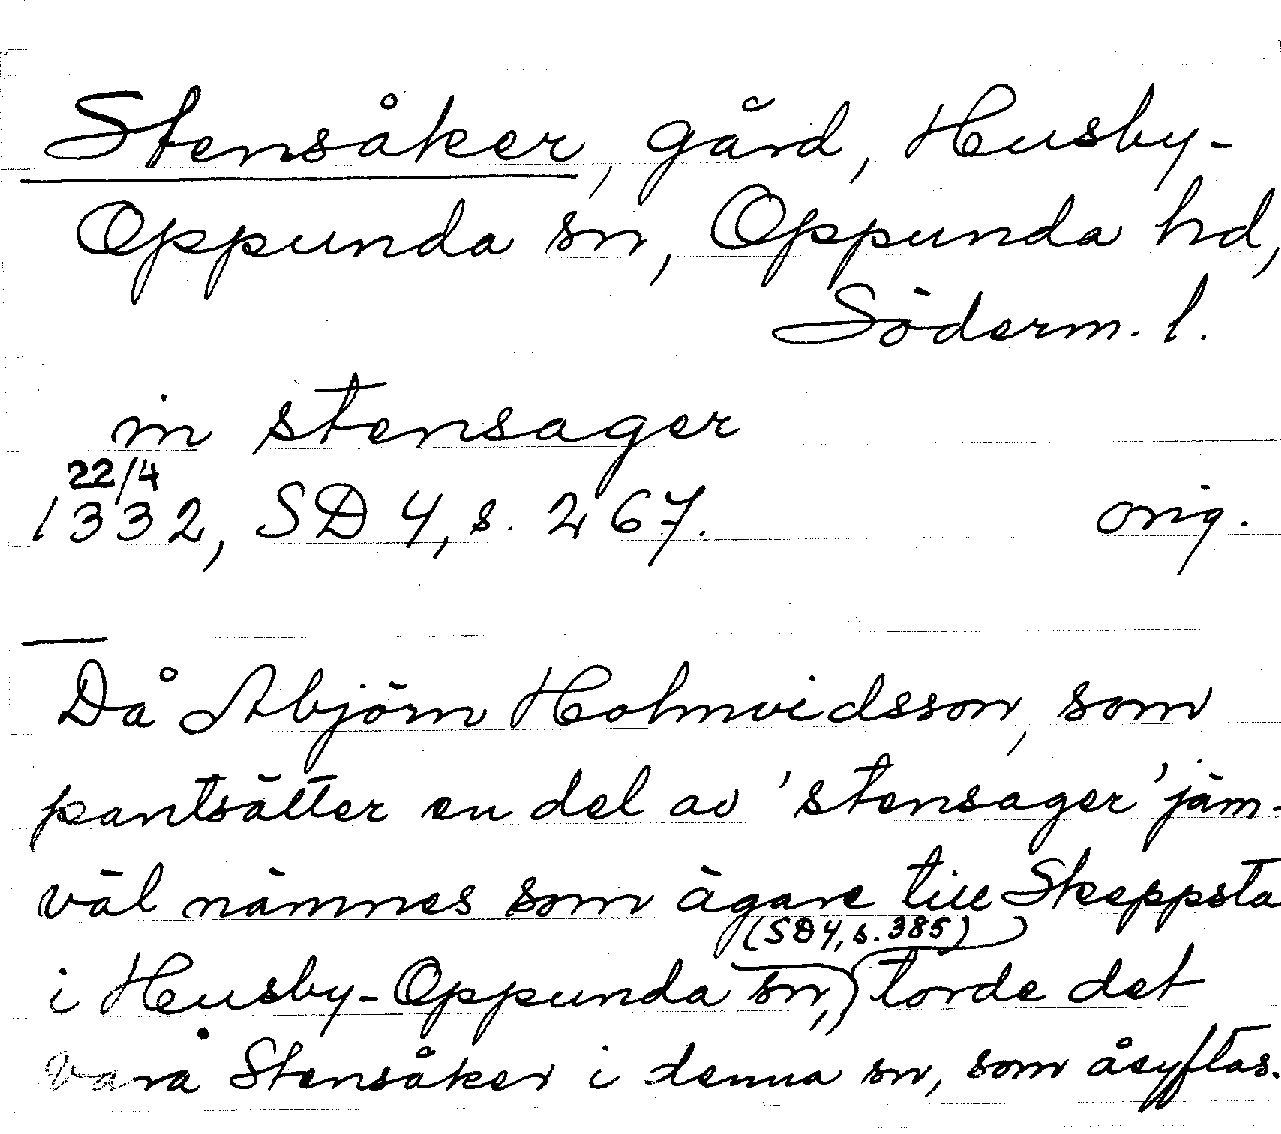 Stensåker, gård, Husby-
Oppunda sn, Oppunda hd,
Söderm. l.
in stensager
22/4
1332, SD 4, s. 267. orig.
Då Abjörn Holmvidsson, som
pantsätter en del av 'stensager' jäm-
väl nämnes som ägare till Skeppsta
(SD 4, s. 385)
i Husby-Oppunda sn, torde det
vara Stensåker i denna sn, som åsyftas.